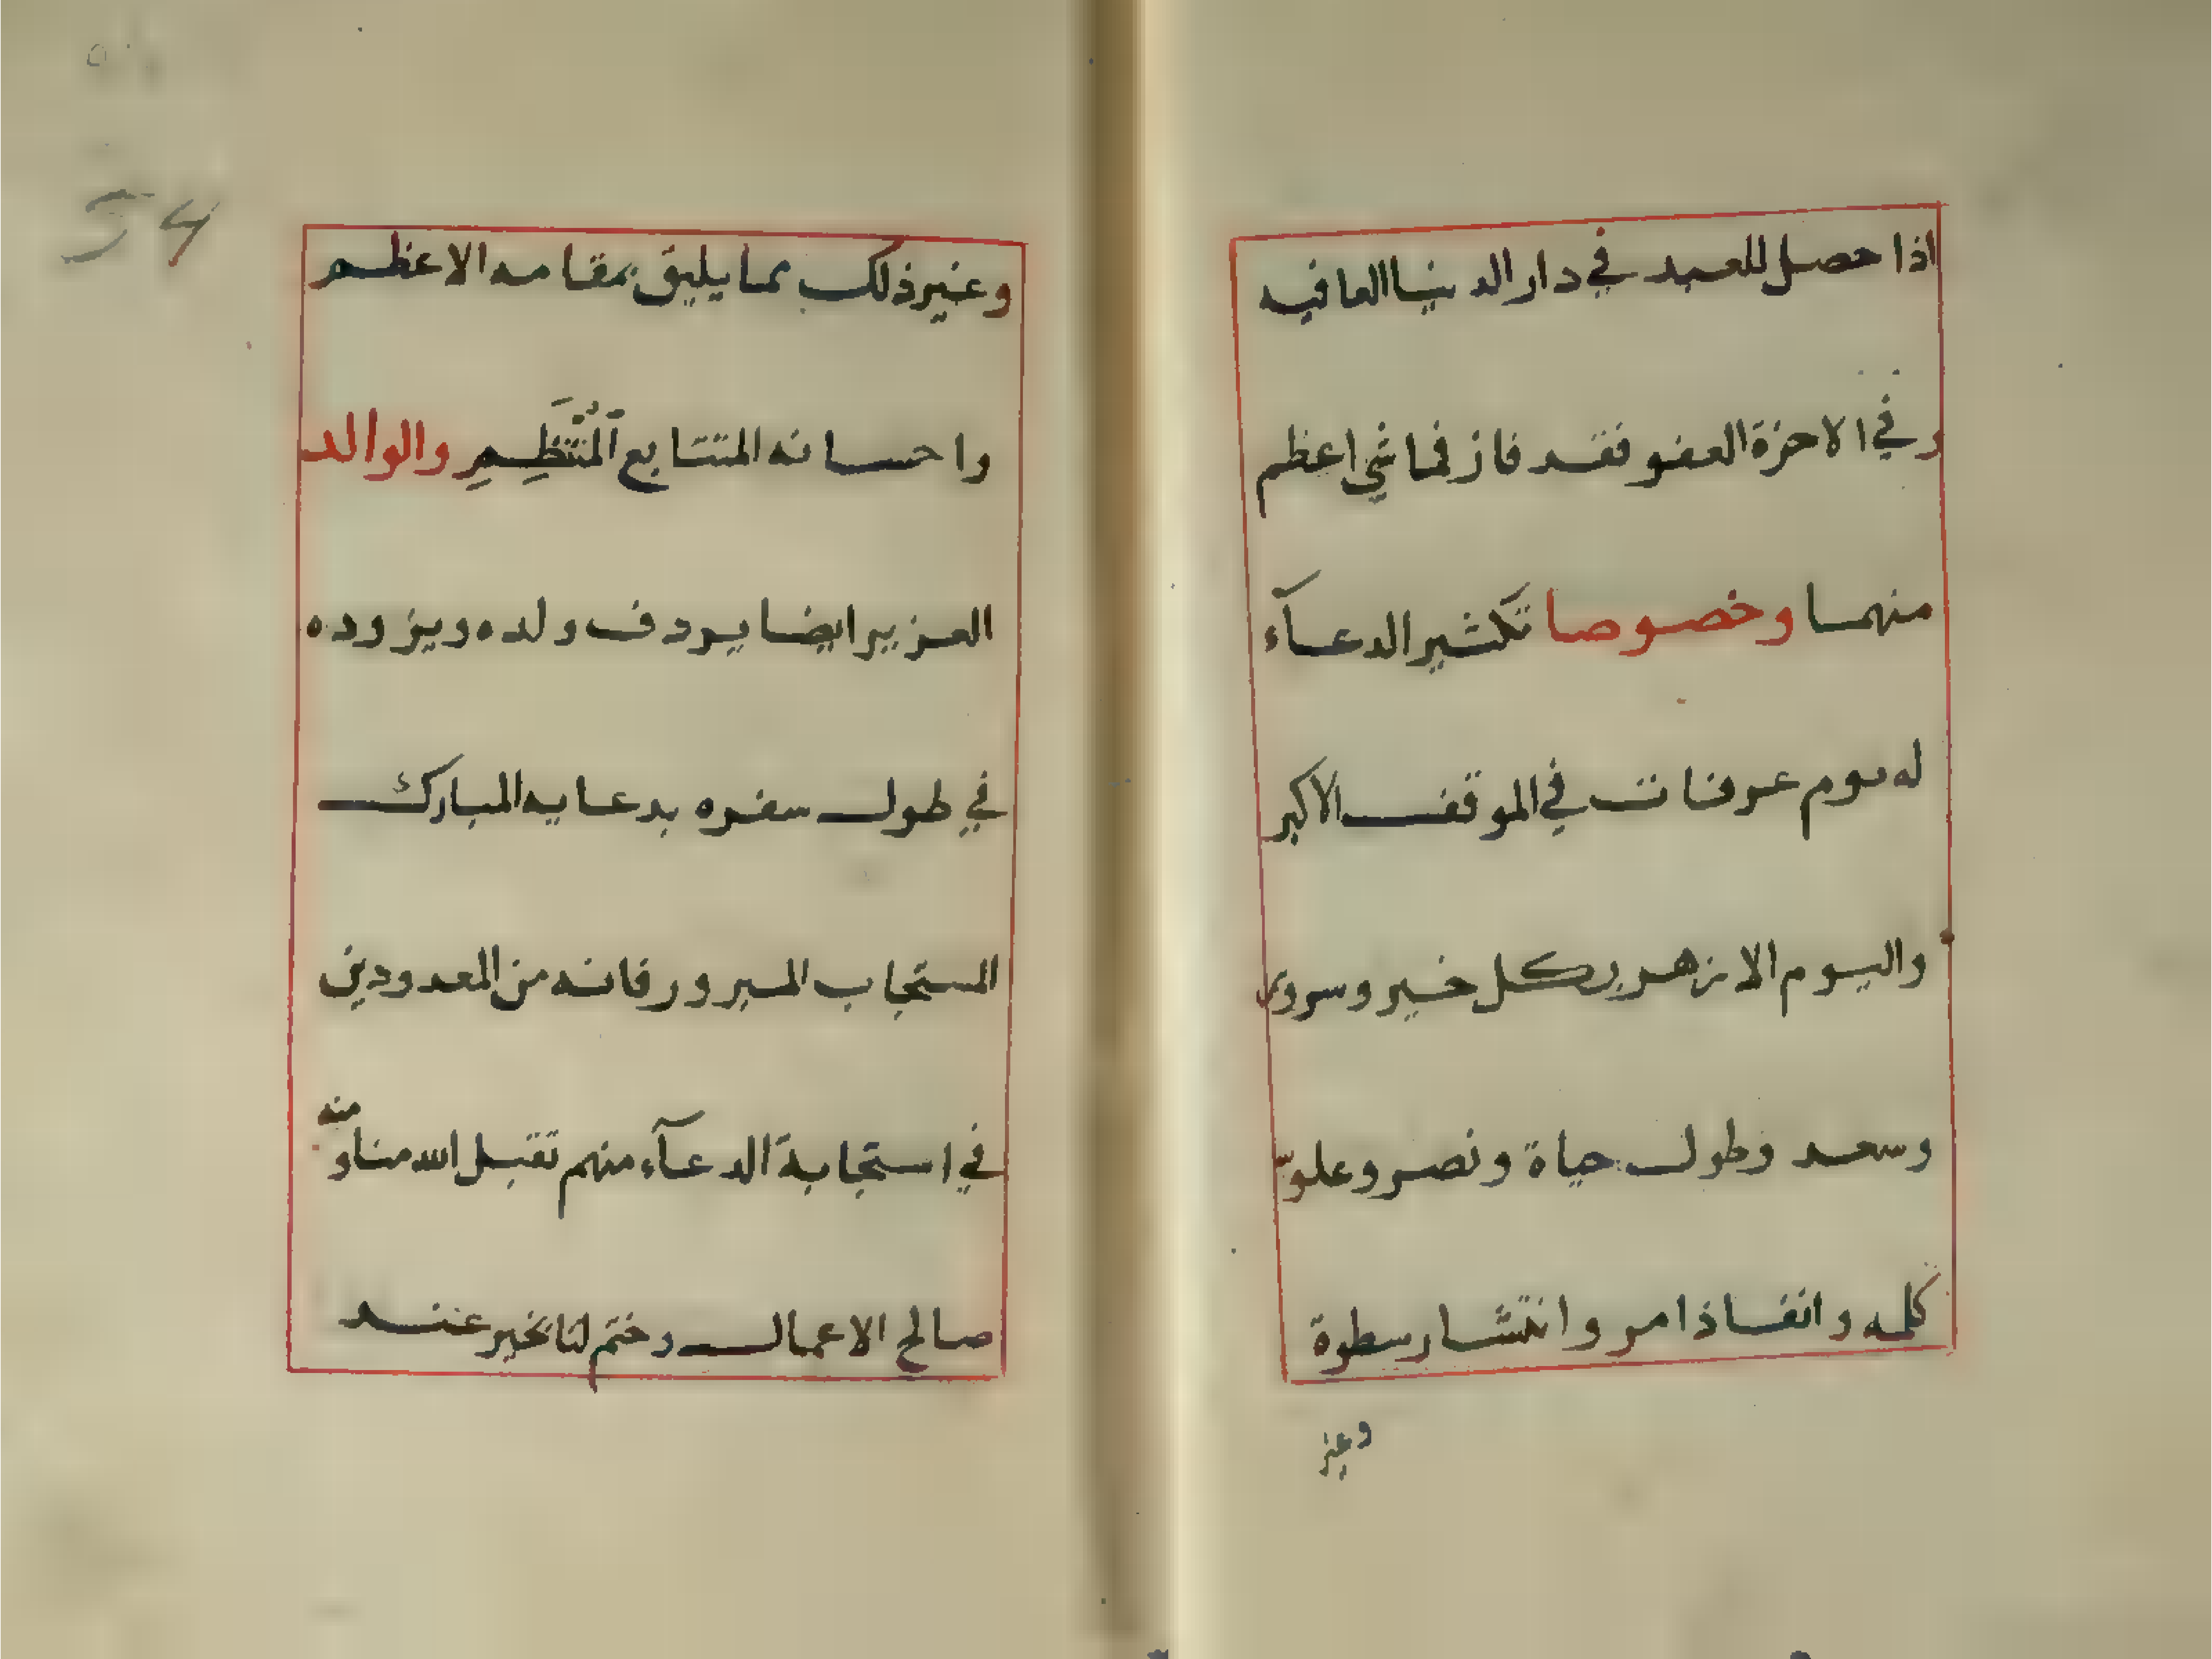 اذا حصل للعبد في دار الدنيا العافيه
وفي الاخرة العفو فقد فاز فماشي اعظم
منهما وخصوصا تكثير الدعآء
له يوم عرفات في الموقف الاكبر
واليوم الازهر بكل خير وسرور
وسعد وطول حياة ونصر وعلو
كلمه وانفاذ امر وانتشار سطوة
وغير
54
وغير ذلك مما يليق بمقامه الاعظم
واحسانه المتتابع المُنْتَظِمِ والوالد
العزيز ايضا يردف ولده ويزوده
في طول سفره بدعايه المبارك
المستجاب المبرور فانه من المعدودين
في استجابة الدعآء منهم تقبل الله منا ومنه
صالح الاعمال وختم لنا بخير عند